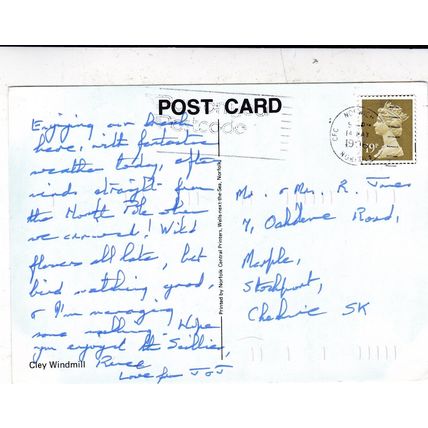 POST CARD
Postcode
Enjoying our break
here, with fantastic
weather today, after
winds straight from
the North Pole when
we arrived! Wild
flowers all late, but
bird watching good,
& I'm managing
some walking. Hope
you enjoyed the Scillies,
Love from J & J
Cley Windmill
Printed by Norfolk Central Printers, Wells-next-the-Sea, Norfolk
Mr. & Mrs. R. Jones
7, Oakdene Road,
Marple,
Stockport,
Cheshire SK